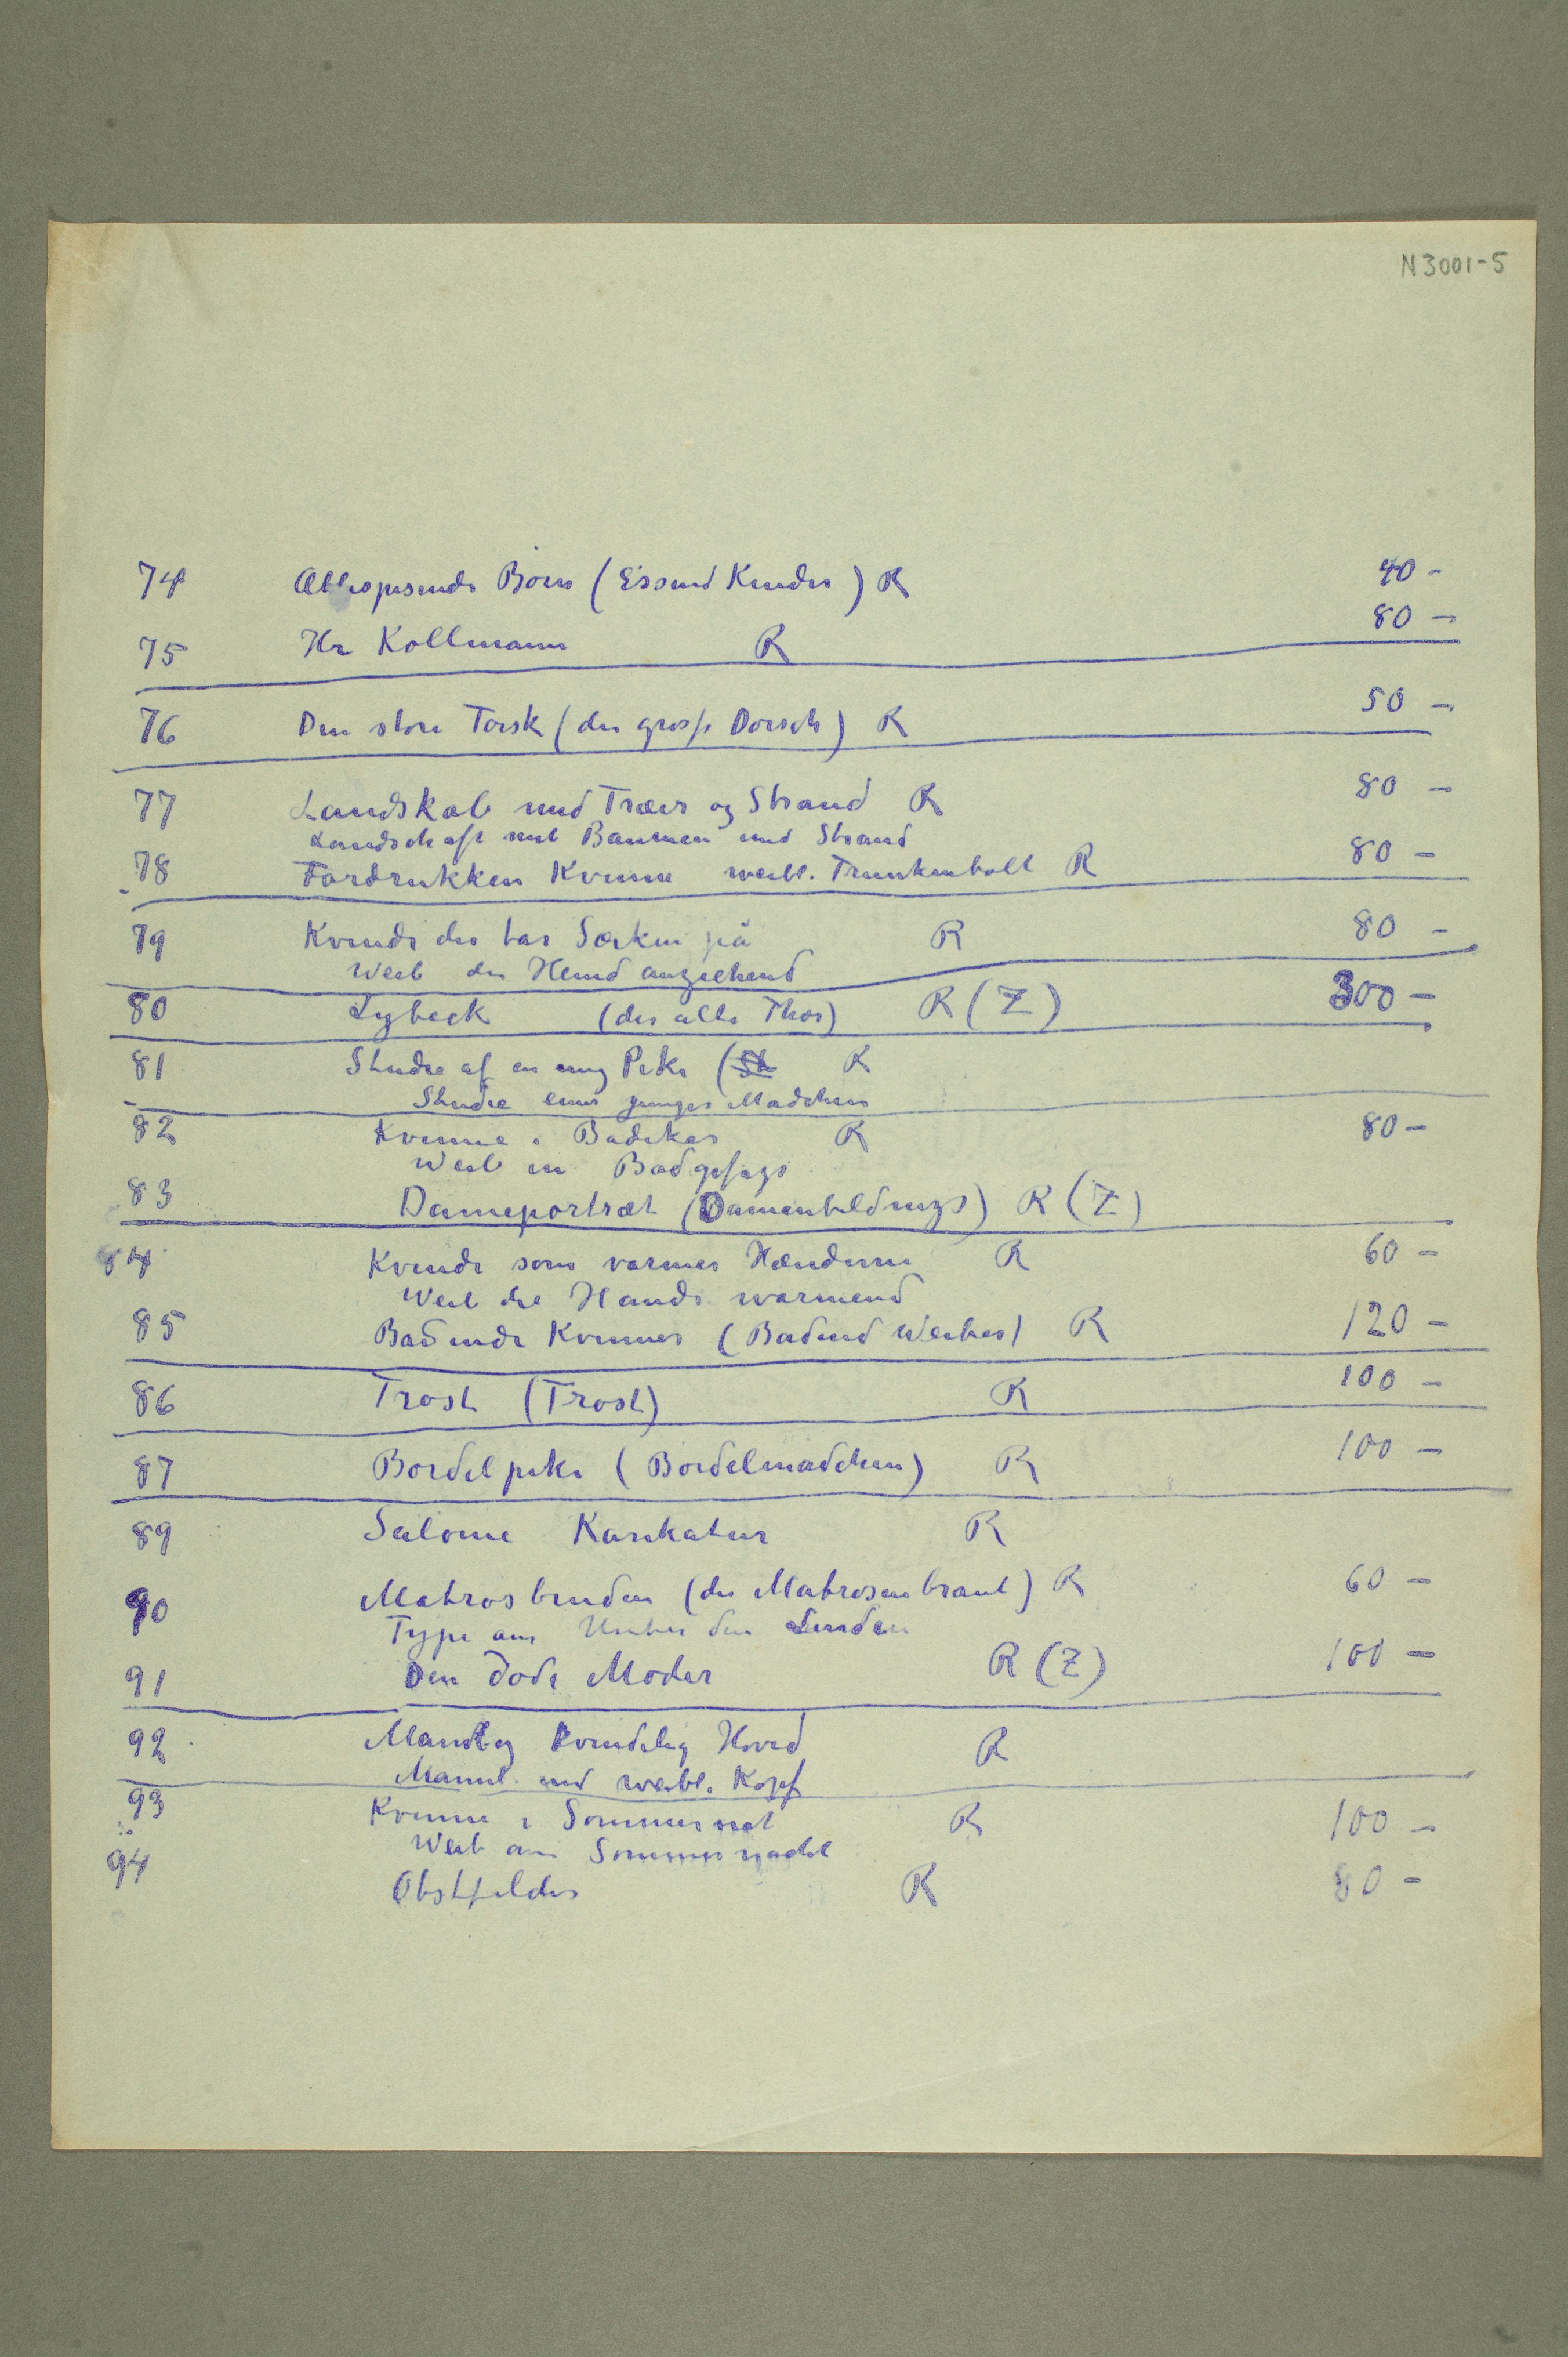 N 3001-5
74 Æblespisende Børn (Essend Kinder) R 40 -
75 Hr Kollmann R 80 -
76 Den store Torsk (der grosse Dorsch) R 50 -
77 Landskab med Træer og Strand R 80 -
Landschaft mit Baumen und Strand
78 Fordrukken Kvinne weibl. Trunkenbolt R 80 -
79 Kvinde der tar Særken på R 80 -
Weib der Hemd anziehend
80 Lybeck (der alte Thor) R (Z) 300 -
81 Studie af en ung Pike (St R
Studie eines junges Madchens
82 Kvinne i Badekar R 80 -
Weib in
83 Dameportræt (Damenbildnigs) R (Z)
84 Kvinde som varmer Hænderne R 60 -
Weib die Hande warmend
85 Badende Kvinner (Badend Weiber) R 120 -
86 Trøst (Trost) R 100 -
87 Bordelpike (Bordelmadchen) R 100 -
89 Salome Karikatur R
90 Matrosbruden (die Matrosenbraut) R 60 -
Type aus Unter den Linden
91 Den døde Moder R (Z) 100 -
92 Mandlig Kvindelig Hoved R
Mannl. und weibl. Kopf
93 Kvinne i Sommernat R 100 -
Weib am Sommernacht
94 Obstfelder R 80 -